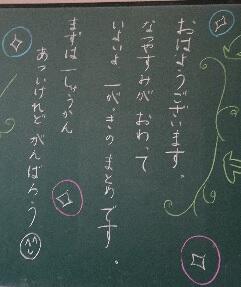 おはようございます。
なつやすみが おわって
いよいよ 一がっきの まとめ です。
まずは 一しゅうかん
あついけれど がんばろう